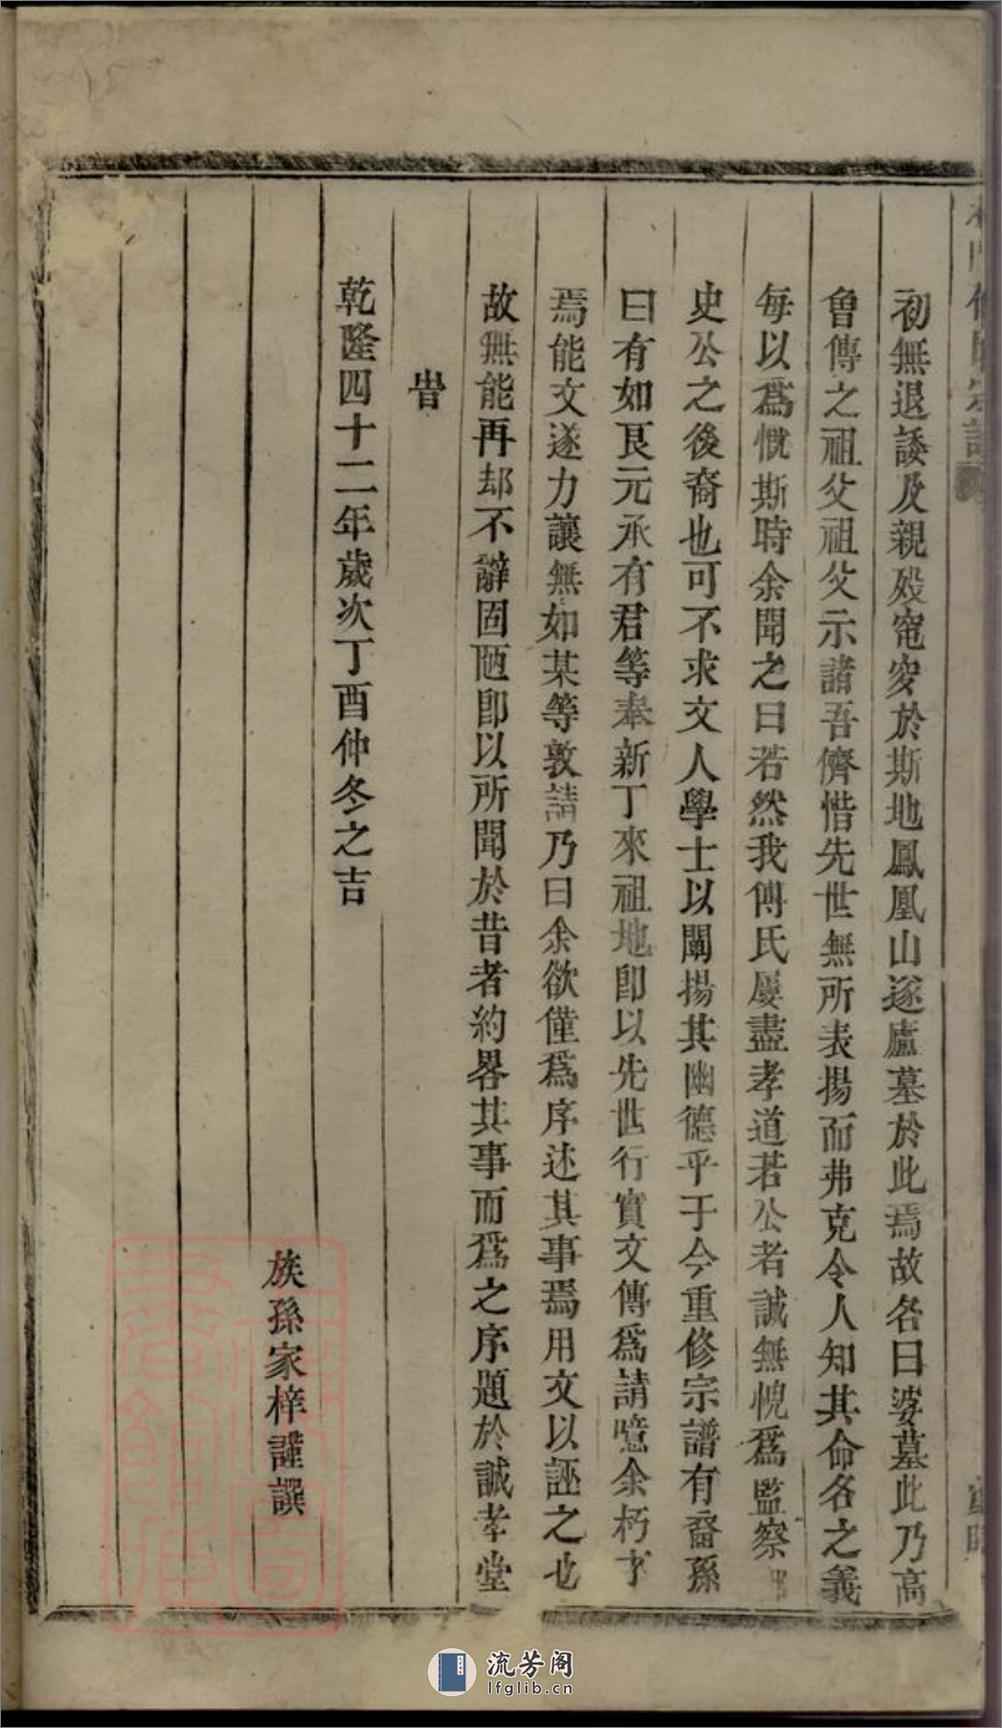 初無退諉及親歿窀穸於斯地鳳凰山遂廬墓於此焉故名曰婆墓此乃高
曾傳之祖父祖父示諸吾儕惜先世無所表揚而弗克令人知其命名之義
每以爲慨斯時余聞之曰若然我傅氏屡盡孝道若公者誠無愧爲監察
史公之後裔也可不求文人學士以闡揚其幽德乎于今重修宗譜有裔孫
曰有如艮元承有君等奉新丁來祖地卽以先世行實文傳爲請噫余朽才
焉能文遂力讓無如某等敦請乃曰余欲僅爲序述其事焉用文以誣之也
故無能再却不辭固陋卽以所聞於昔者約畧其事而爲之序題於誠孝堂
旹
乾隆四十二年歲次丁酉仲冬之吉
族孫家梓謹譔
流芳阁
lfglib.cn